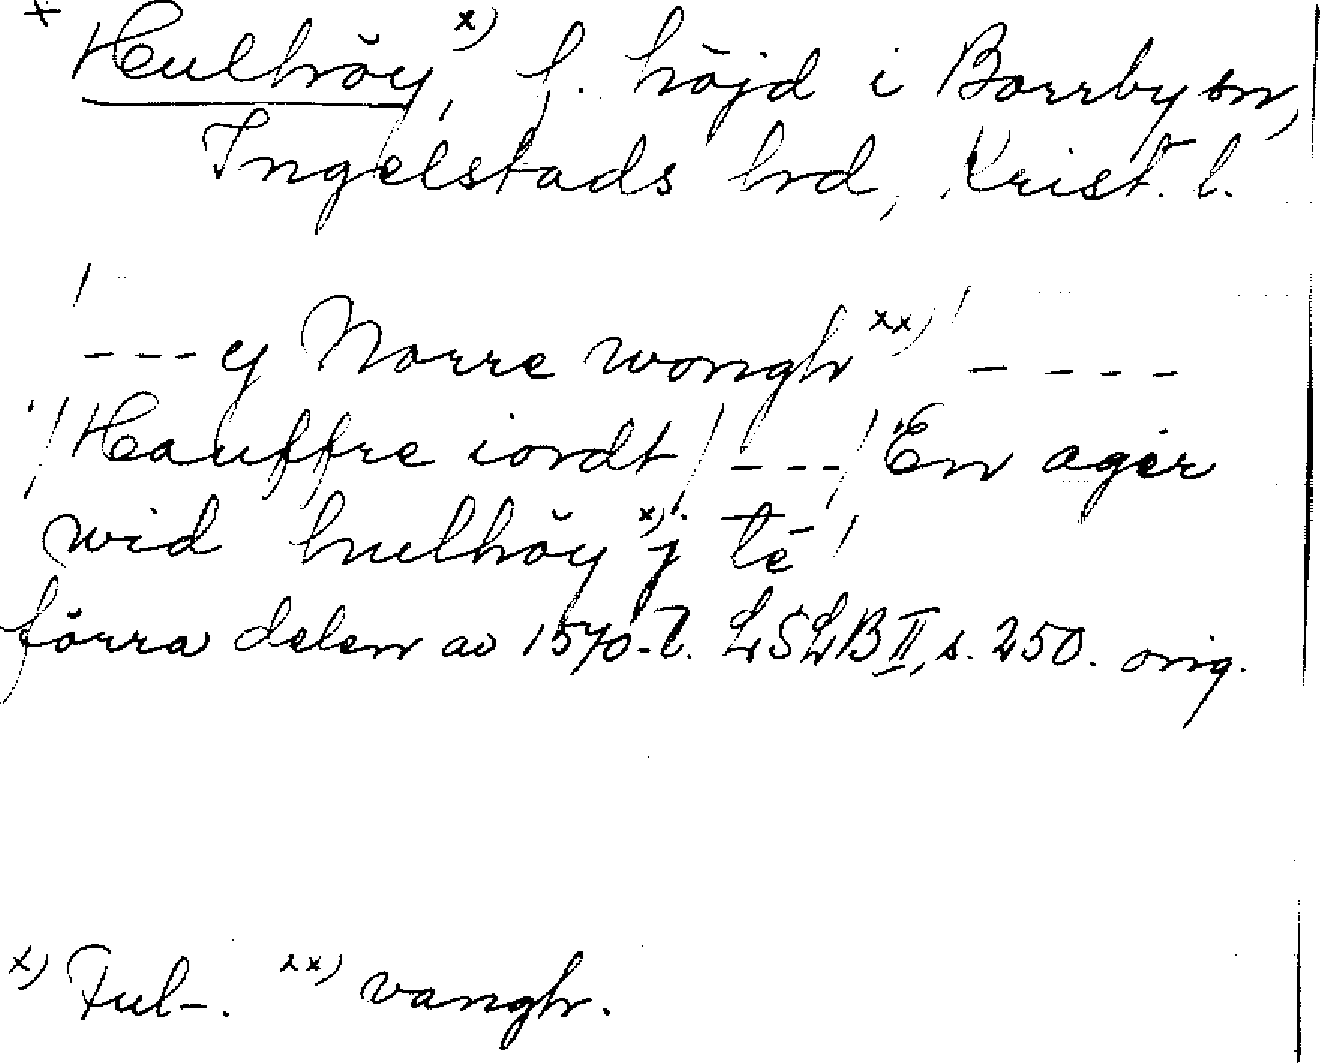 + Hulhöy, x) f. höjd i Borrby sn,
Ingelstads hrd, Krist. l.
--- y Norre wongh xx) ----
Hauffre iordt --- En ager
wid hulhöy x) j té
förra delen av 1570-t. LSLB II, s. 250. orig.
x) Ful-. xx) vangh.